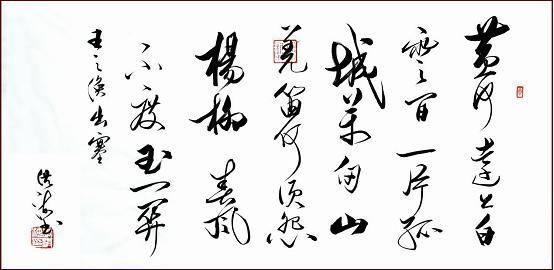 黄河遠上白
雲间一片孤
城萬仞山
羌笛何须怨
楊柳春风
不度玉门关
王之涣出塞
书